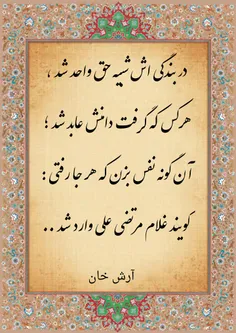 در بندگی اش شبیه حق واحد شد ،
هرکس که گرفت دامنش عابد شد ؛
آن گونه نفس بزن که هر جا رفتی :
گویند غلام مرتضی علی وارد شد ..
آرش خان